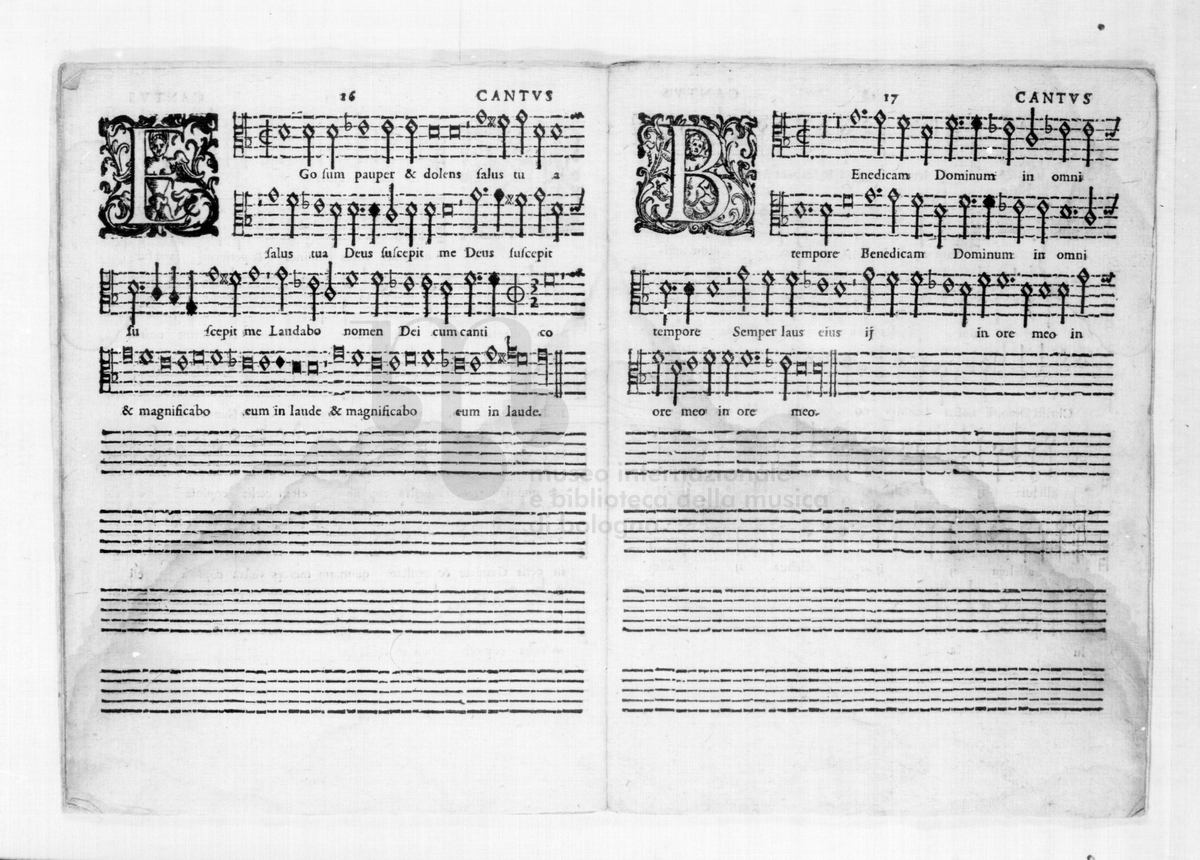 16 CANTVS
EGo ſum pauper & dolens ſalus tu a
ſalus tua Deus ſuſcepit me Deus ſuſcepit
ſu ſcepit me Laudabo nomen Dei cum canti co
& magnificabo eum in laude & magnificabo eum in laude.
17 CANTVS
BEnedicam Dominum in omni
tempore Benedicam Dominum in omni
tempore Semper laus eius ij in ore meo in
ore meo in ore meo.
museo internazionale
e biblioteca della musica
di bologna